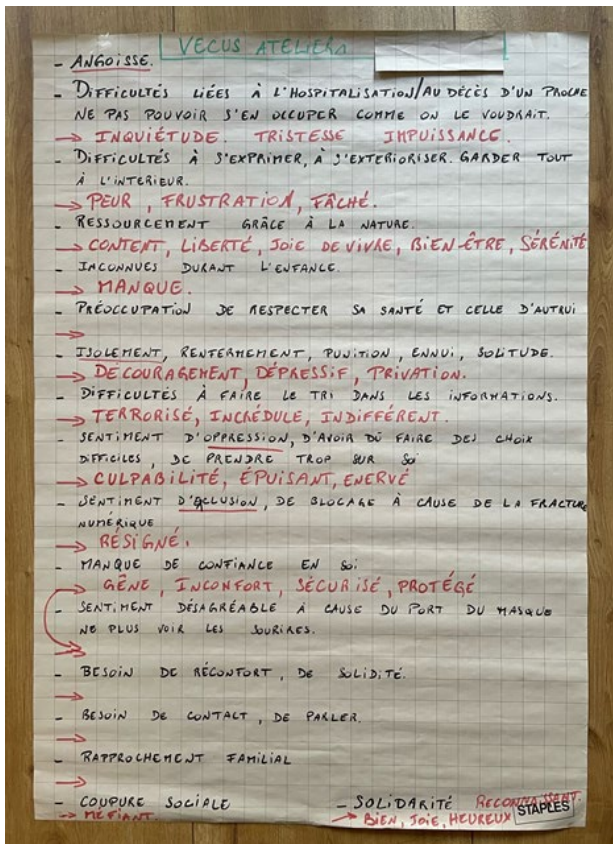 VECUS ATELIERS
- ANGOISSE.
- DIFFICULTÉS LIÉES À L'HOSPITALISATION/AU DÉCÈS D'UN PROCHE
NE PAS POUVOIR S'EN OCCUPER COMME ON LE VOUDRAIT.
→ INQUIÉTUDE. TRISTESSE IMPUISSANCE.
- DIFFICULTÉS À S'EXPRIMER, À S'EXTERIORISER. GARDER TOUT
À L'INTERIEUR.
→ PEUR, FRUSTRATION, FÂCHÉ.
- RESSOURCEMENT GRÂCE À LA NATURE.
→ CONTENT, LIBERTÉ, JOIE DE VIVRE, BIEN-ÊTRE, SÉRÉNITÉ
- INCONNUES DURANT L'ENFANCE.
→ MANQUE.
- PRÉOCCUPATION DE RESPECTER SA SANTÉ ET CELLE D'AUTRUI
→
- ISOLEMENT, RENFERMEMENT, PUNITION, ENNUI, SOLITUDE.
→ DÉCOURAGEMENT, DÉPRESSIF, PRIVATION.
- DIFFICULTÉS À FAIRE LE TRI DANS LES INFORMATIONS.
→ TERRORISÉ, INCRÉDULE, INDIFFÉRENT.
- SENTIMENT D'OPPRESSION, D'AVOIR DÛ FAIRE DES CHOIX
DIFFICILES, DE PRENDRE TROP SUR SOI
→ CULPABILITÉ, ÉPUISANT, ENERVÉ
- SENTIMENT D'EXCLUSION, DE BLOCAGE À CAUSE DE LA FRACTURE
NUMÉRIQUE
→ RÉSIGNÉ.
- MANQUE DE CONFIANCE EN SOI
→ GÊNE, INCONFORT, SÉCURISÉ, PROTÉGÉ
- SENTIMENT DÉSAGRÉABLE À CAUSE DU PORT DU MASQUE
NE PLUS VOIR LES SOURIRES.
→
- BESOIN DE RÉCONFORT, DE SOLIDITÉ.
→
- BESOIN DE CONTACT, DE PARLER.
→
- RAPPROCHEMENT FAMILIAL
→
- COUPURE SOCIALE
→ MÉFIANT.
- SOLIDARITÉ RECONNAISSANT.
→ BIEN, JOIE, HEUREUX
STAPLES